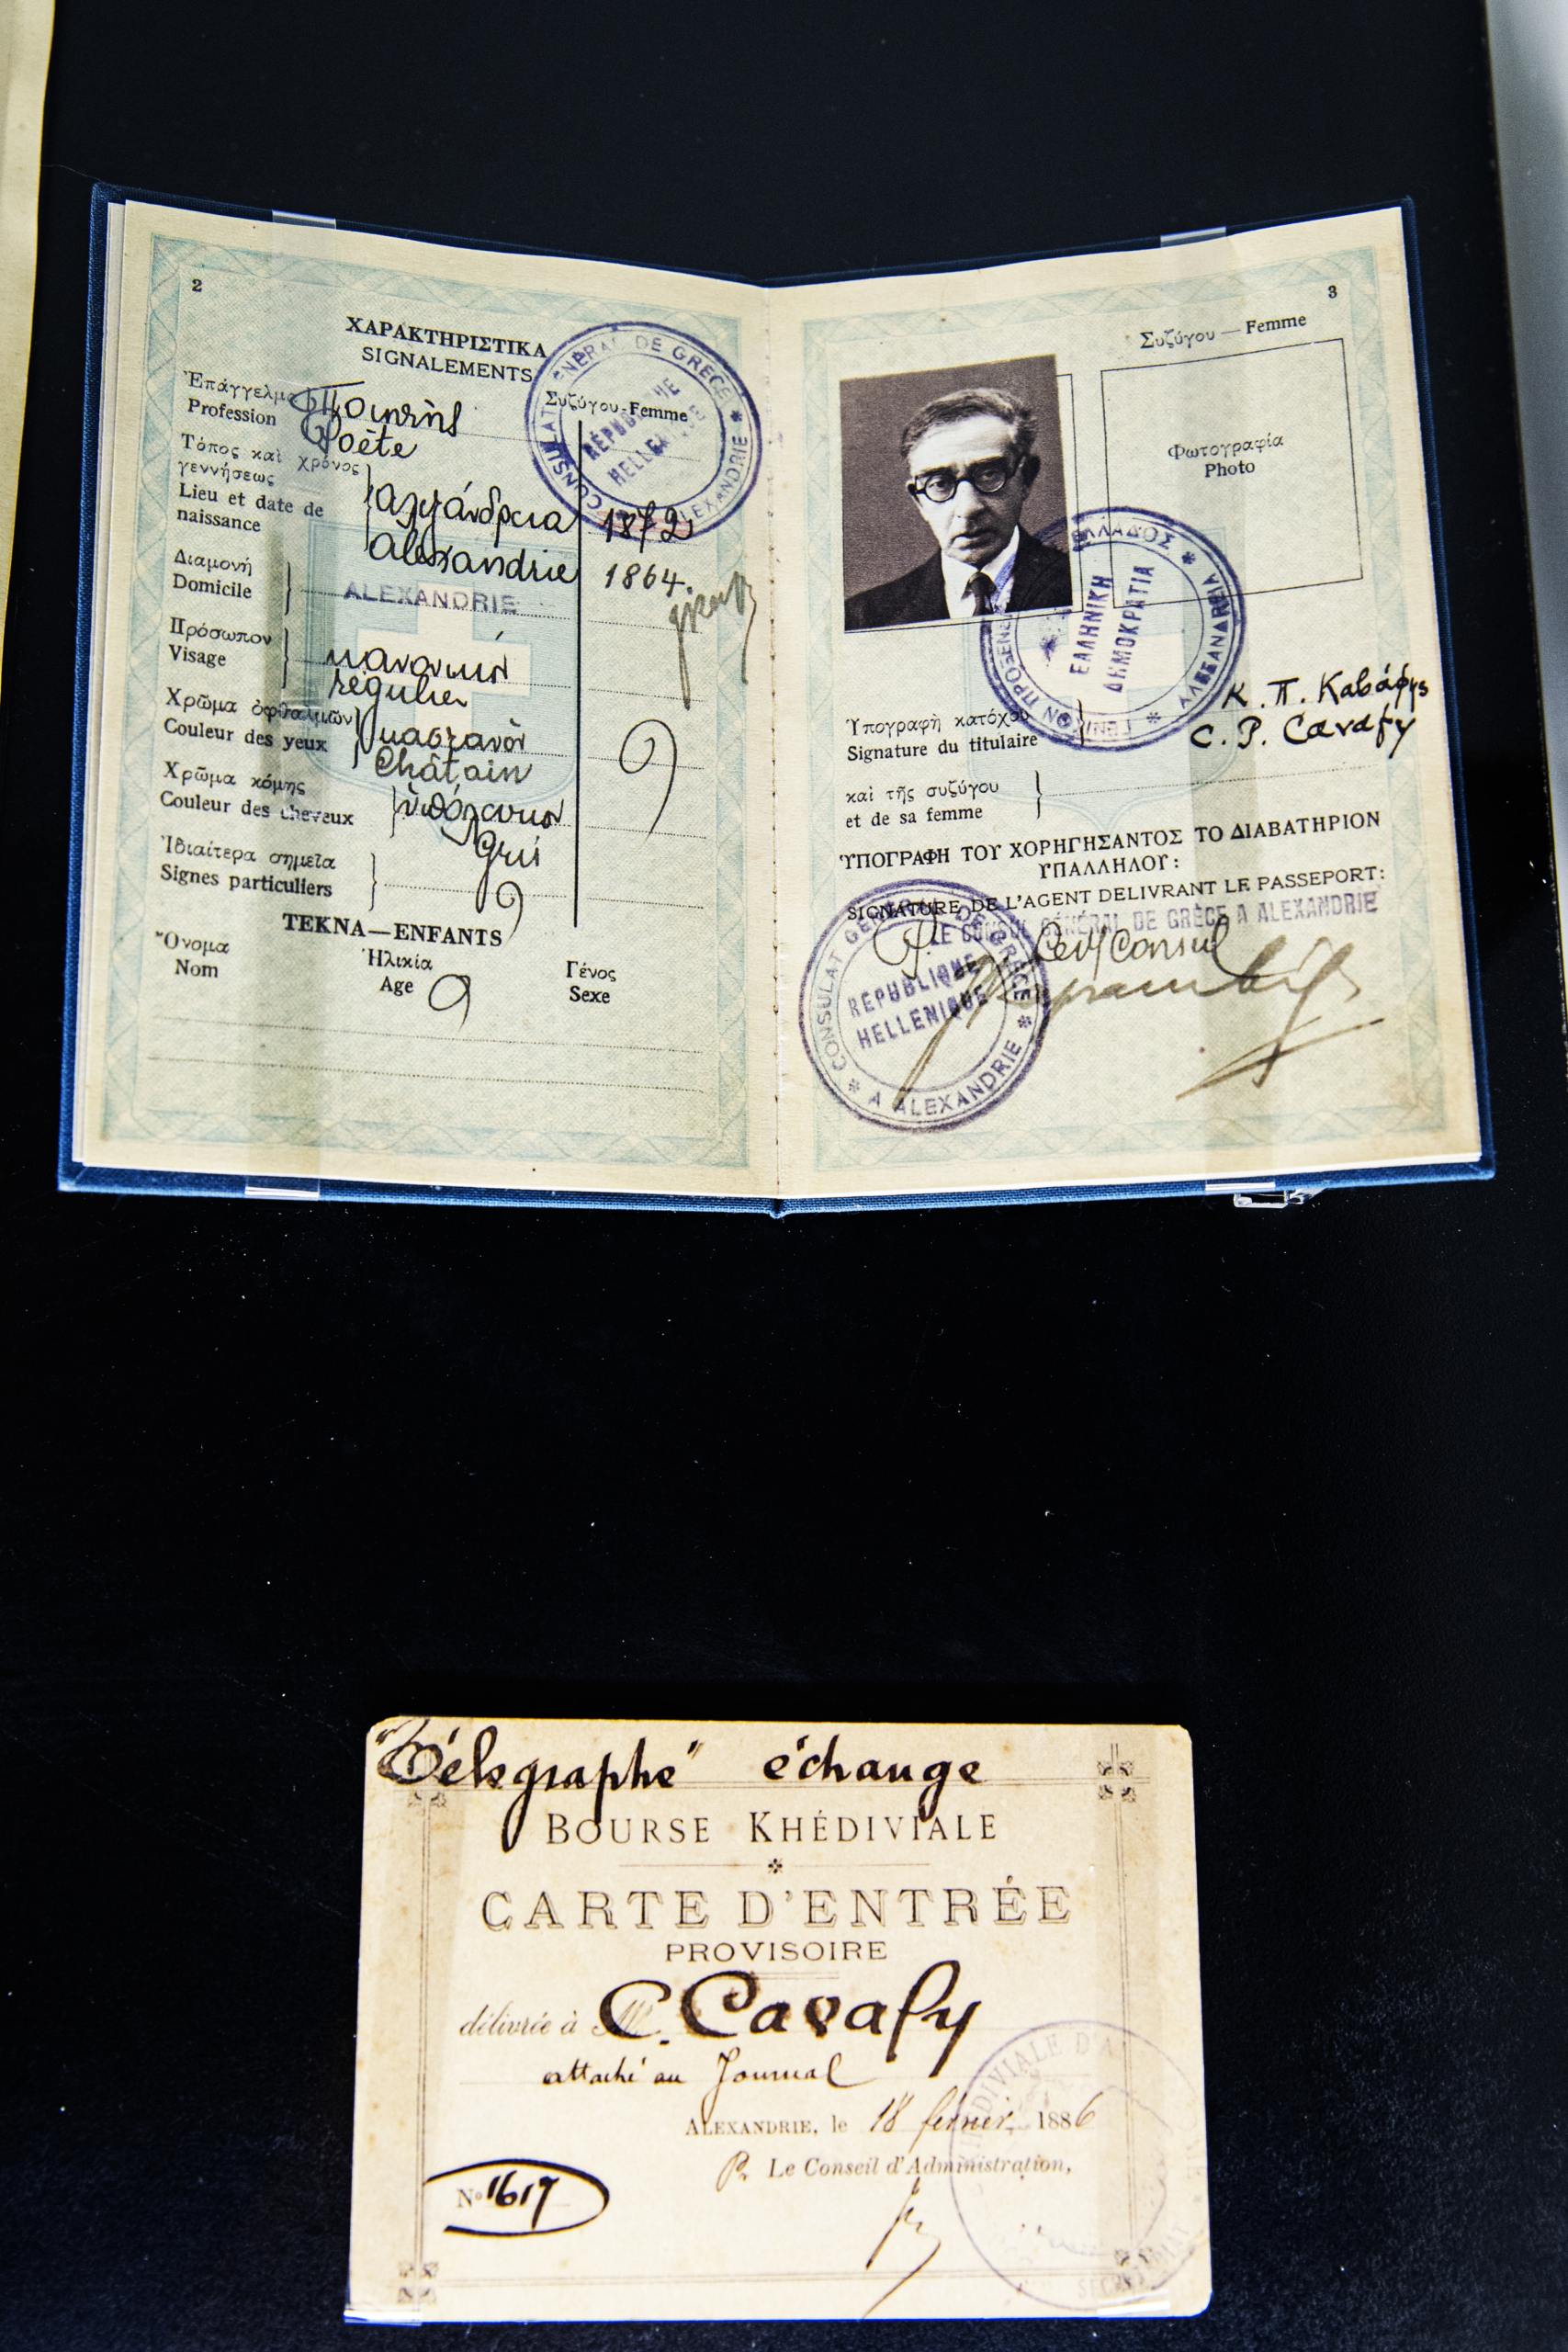 2
ΧΑΡΑΚΤΗΡΙΣΤΙΚΑ
SIGNALEMENTS
Συζύγου-Femme
CONSULAT GÉNÉRAL DE GRÈCE * A ALEXANDRIE *
RÉPUBLIQUE
HELLENIQUE
Ἐπάγγελμα Ποιητής
Profession Poète
Τόπος καὶ χρόνος
γεννήσεως
Lieu et date de
naissance
Αλεξάνδρεια 1872
Alexandrie 1864.
Διαμονή
Domicile
ALEXANDRIE
Πρόσωπον
Visage
κανονικόν
régulier
Χρῶμα ὀφθαλμῶν
Couleur des yeux
καστανὸν
Châtain
Χρῶμα κόμης
Couleur des cheveux
ὑπόλευκον
Gris
Ἰδιαίτερα σημεῖα
Signes particuliers
ΤΕΚΝΑ—ENFANTS
Ὄνομα Ἡλικία Γένος
Nom Age Sexe
3
Συζύγου — Femme
Φωτογραφία
Photo
ΕΛΛΗΝΙΚΗ
ΔΗΜΟΚΡΑΤΙΑ
ΓΕΝΙΚΟΝ ΠΡΟΞΕΝΕΙΟΝ ΕΛΛΑΔΟΣ * ΑΛΕΞΑΝΔΡΕΙΑ *
Ὑπογραφὴ κατόχου
Signature du titulaire
Κ. Π. Καβάφης
C. P. Cavafy
καὶ τῆς συζύγου
et de sa femme
ὙΠΟΓΡΑΦΗ ΤΟΥ ΧΟΡΗΓΗΣΑΝΤΟΣ ΤΟ ΔΙΑΒΑΤΗΡΙΟΝ
ΥΠΑΛΛΗΛΟΥ:
SIGNATURE DE L'AGENT DELIVRANT LE PASSEPORT:
LE CONSUL GÉNÉRAL DE GRÈCE A ALEXANDRIE
Consul
CONSULAT GÉNÉRAL DE GRÈCE * A ALEXANDRIE *
RÉPUBLIQUE
HELLENIQUE
"Télégraphe" échange
BOURSE KHÉDIVIALE
CARTE D'ENTRÉE
PROVISOIRE
délivrée à M. C. Cavafy
attaché au Journal
ALEXANDRIE, le 18 février 1886
Pr. Le Conseil d'Administration,
No 1617